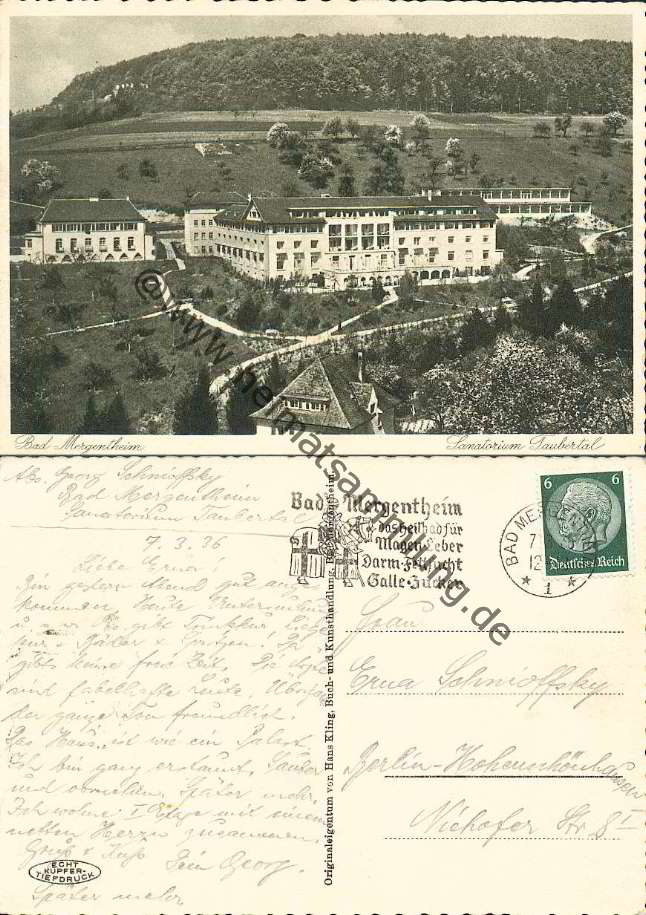 Bad Mergentheim
Sanatorium Taubertal
© www.heimatsammlung.de
Abs. Georg Schnioffsky
Bad Mergentheim
Sanatorium Taubertal
7.3.36
Liebe Erna!
Bin gestern Abend gut ange-
kommen. Heute Untersuchung
u.s.w. Es gibt Trinkkur,
Bäder
gibts keine freie Zeit. Die Ärzte
sind fabelhafte Leute. Überhaupt
der ganze Ton freundlich.
Das Haus ist wie ein Palast.
Ich bin ganz erstaunt. Sauber
und ordentlich. Später mehr.
Ich wohne I Etage mit einem
netten Herrn zusammen.
Gruß & Kuß Dein Georg.
Später mehr
ECHT
KUPFER-
TIEFDRUCK
Originaleigentum von Hans Kling, Buch- und Kunsthandlung, Bad Mergentheim.
Bad Mergentheim
das Heilbad für
Magen Leber
Darm-Fettsucht
Galle-Zucker
BAD MERGENTHEIM
1
6 6
Deutsches Reich
Frau
Erna Schnioffsky
Berlin-Hohenschönhausen
Niehofer Str 8 I